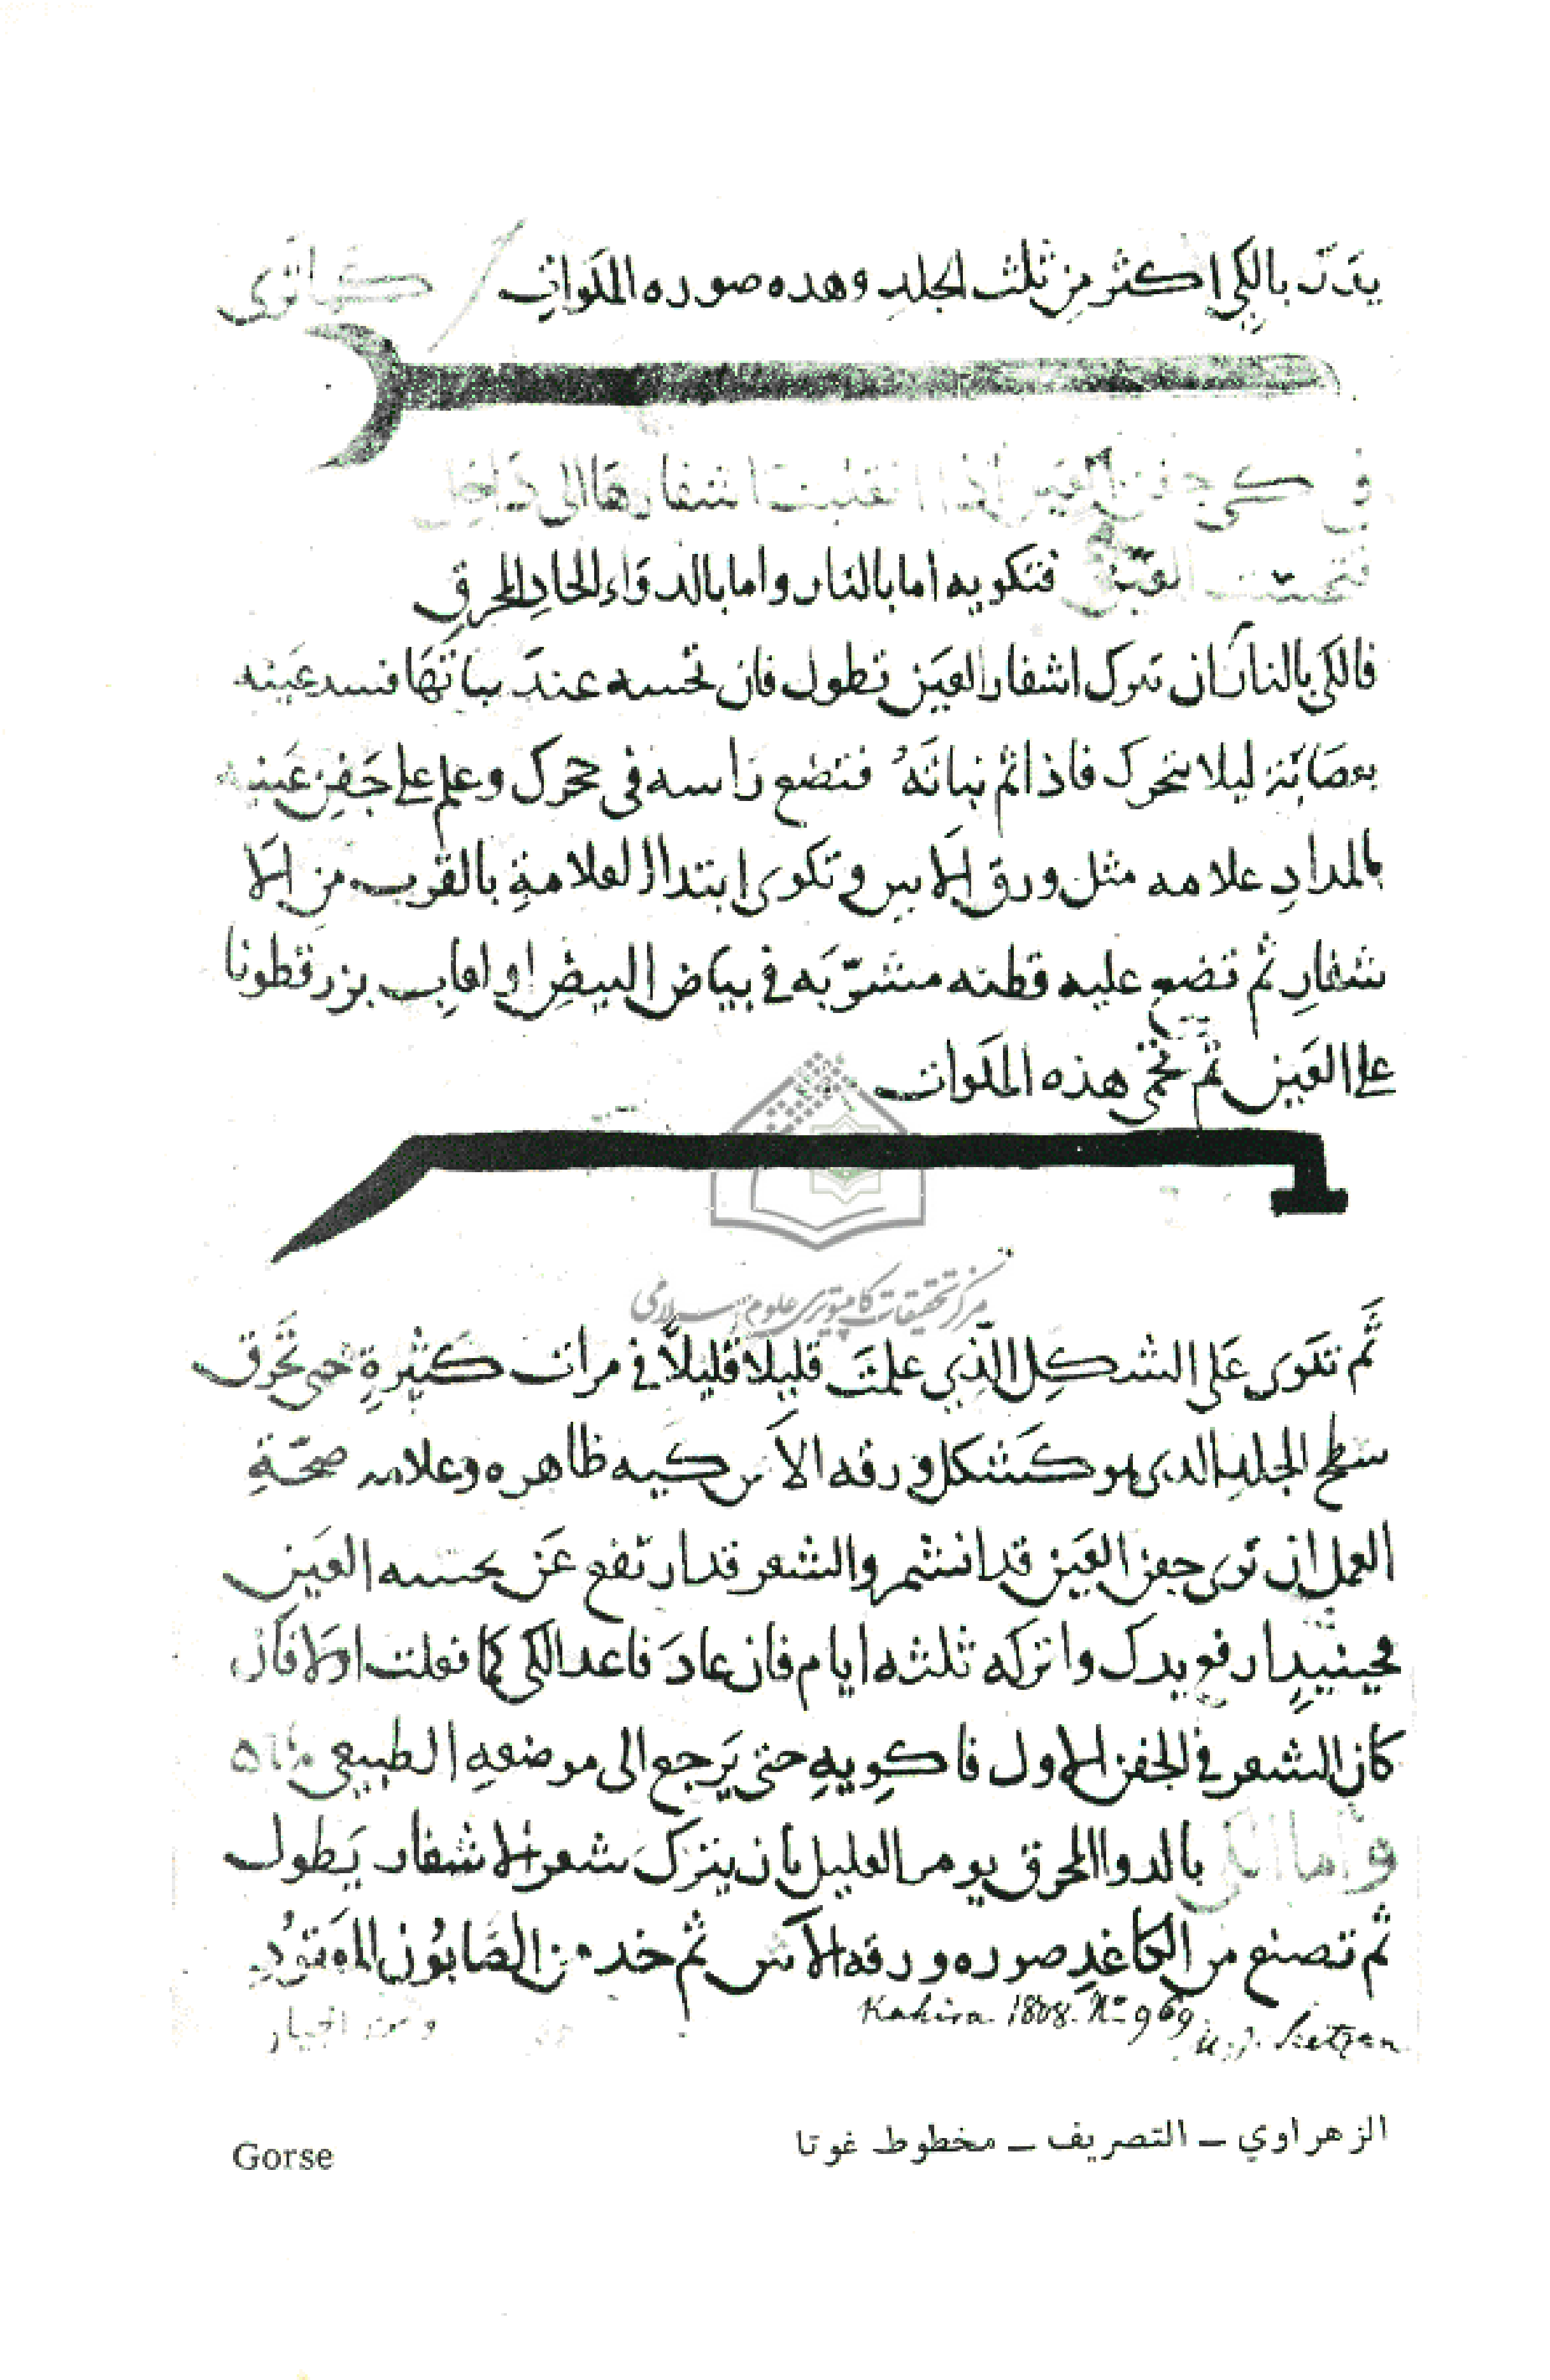 بالكي اكثر من ثلث الجلد وهده صوره المكواة
في كي جفن العين اذا انقلبت اشفارها الى داخل
العين فتكويه اما بالنار واما بالدوَاء الحادِ المحرقِ
فالكَي بالنار ان تترك اشفار العيَن تطول فان تحسه عندَ نباتهَا فسد عَينه
بعصَابَة ليلا يتحرك فاذا تم نباتَهُ فتضع رَاسه فى حجرك وعلم على جَفنِ عَينيه
بالمدادِ علامه مثل ورق الاس وتكوى ابتدا العلامةِ بالقرب من الا
شفارِ ثم تضع عليه قطنه مشرّبَه في بيَاض البيضِ او لعابِ بزرقطونا
على العَين ثم تحمى هذه المكَوات
مركز تحقيقات كامپيوترى علوم اسلامى
ثَم تكَوى عَلى الشكِل الّذِي علمتَ قليلاً قليلاً في مرات كَثيرةٍ حتى تحَرق
سَطح الجلدِ الدى هو كَشكل ورقه الاَس كَيه ظاهره وعلامه صحّةِ
العمل ان ترَى جفن العَين قد انشمر والشعر قد ارتفع عَن العَين
فحينيدٍ ارفع يدكَ واتركه ثلثه ايام فان عادَ فاعد الكَى كما فعلت اولا فان
كان الشعر في الجفن الاول فاكوِيهِ حتى يَرجع الى موضعهِ الطبيعى
واما الكى بالدوا المحرق يومر العليل بان يتركَ شعر الاشفار يَطول
ثم تصنع من الكاغدِ صوره ورقه الآس ثم خد من الصَابُون المعَقُودِ
ومن الجيار
Kahira. 1808. No 969
الزهراوي – التصريف – مخطوط غوتا
Gorse